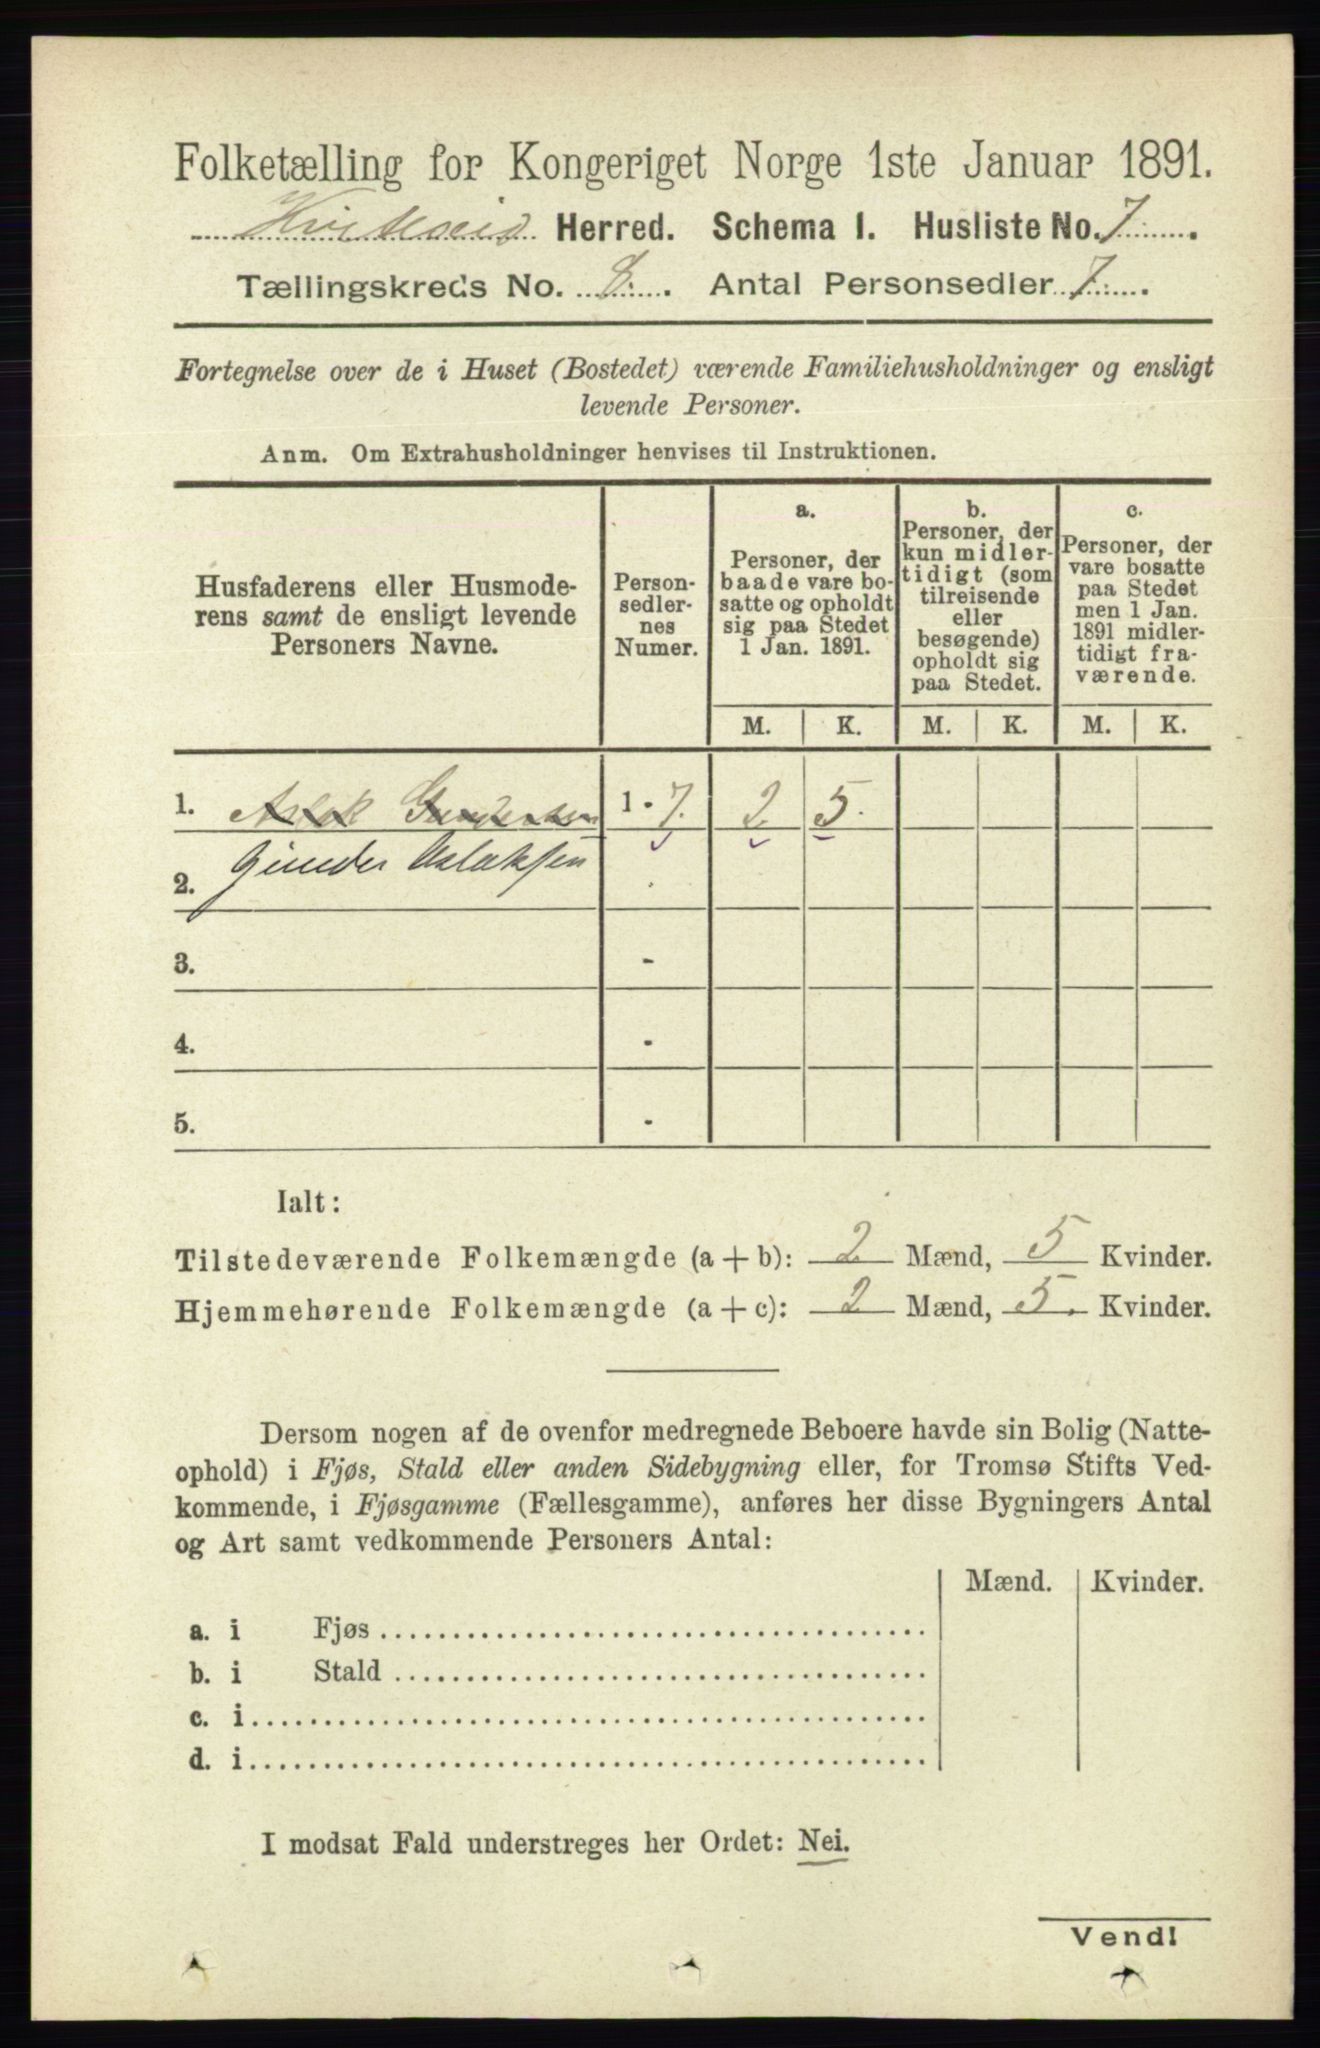 Folketælling for Kongeriget Norge 1ste Januar 1891.
Kviteseid Herred. Schema I. Husliste No. 7.
Tællingskreds No. 8. Antal Personsedler 7.
Fortegnelse over de i Huset (Bostedet) værende Familiehusholdninger og ensligt
levende Personer.
Anm. Om Extrahusholdninger henvises til Instruktionen.
Husfaderens eller Husmode-
rens samt de ensligt levende
Personers Navne.
Person-
sedler-
nes
Numer.
a.
Personer, der
baade vare bo-
satte og opholdt
sig paa Stedet
1 Jan. 1891.
b.
Personer, der
kun midler-
tidigt (som
tilreisende
eller
besøgende)
opholdt sig
paa Stedet.
c.
Personer, der
vare bosatte
paa Stedet
men 1 Jan.
1891 midler-
tidigt fra-
værende.
M. K. M. K. M. K.
1. Aslak Gundersen 1 - 7. 2 5.
Gunder Aslaksen
2.
3. -
4. -
5. -
Ialt:
Tilstedeværende Folkemængde (a + b): 2 Mænd, 5 Kvinder.
Hjemmehørende Folkemængde (a + c): 2 Mænd, 5. Kvinder.
Dersom nogen af de ovenfor medregnede Beboere havde sin Bolig (Natte-
ophold) i Fjøs, Stald eller anden Sidebygning eller, for Tromsø Stifts Ved-
kommende, i Fjøsgamme (Fællesgamme), anføres her disse Bygningers Antal
og Art samt vedkommende Personers Antal:
Mænd. Kvinder.
a. i Fjøs
b. i Stald
c. i
d. i
I modsat Fald understreges her Ordet: Nei.
Vend!